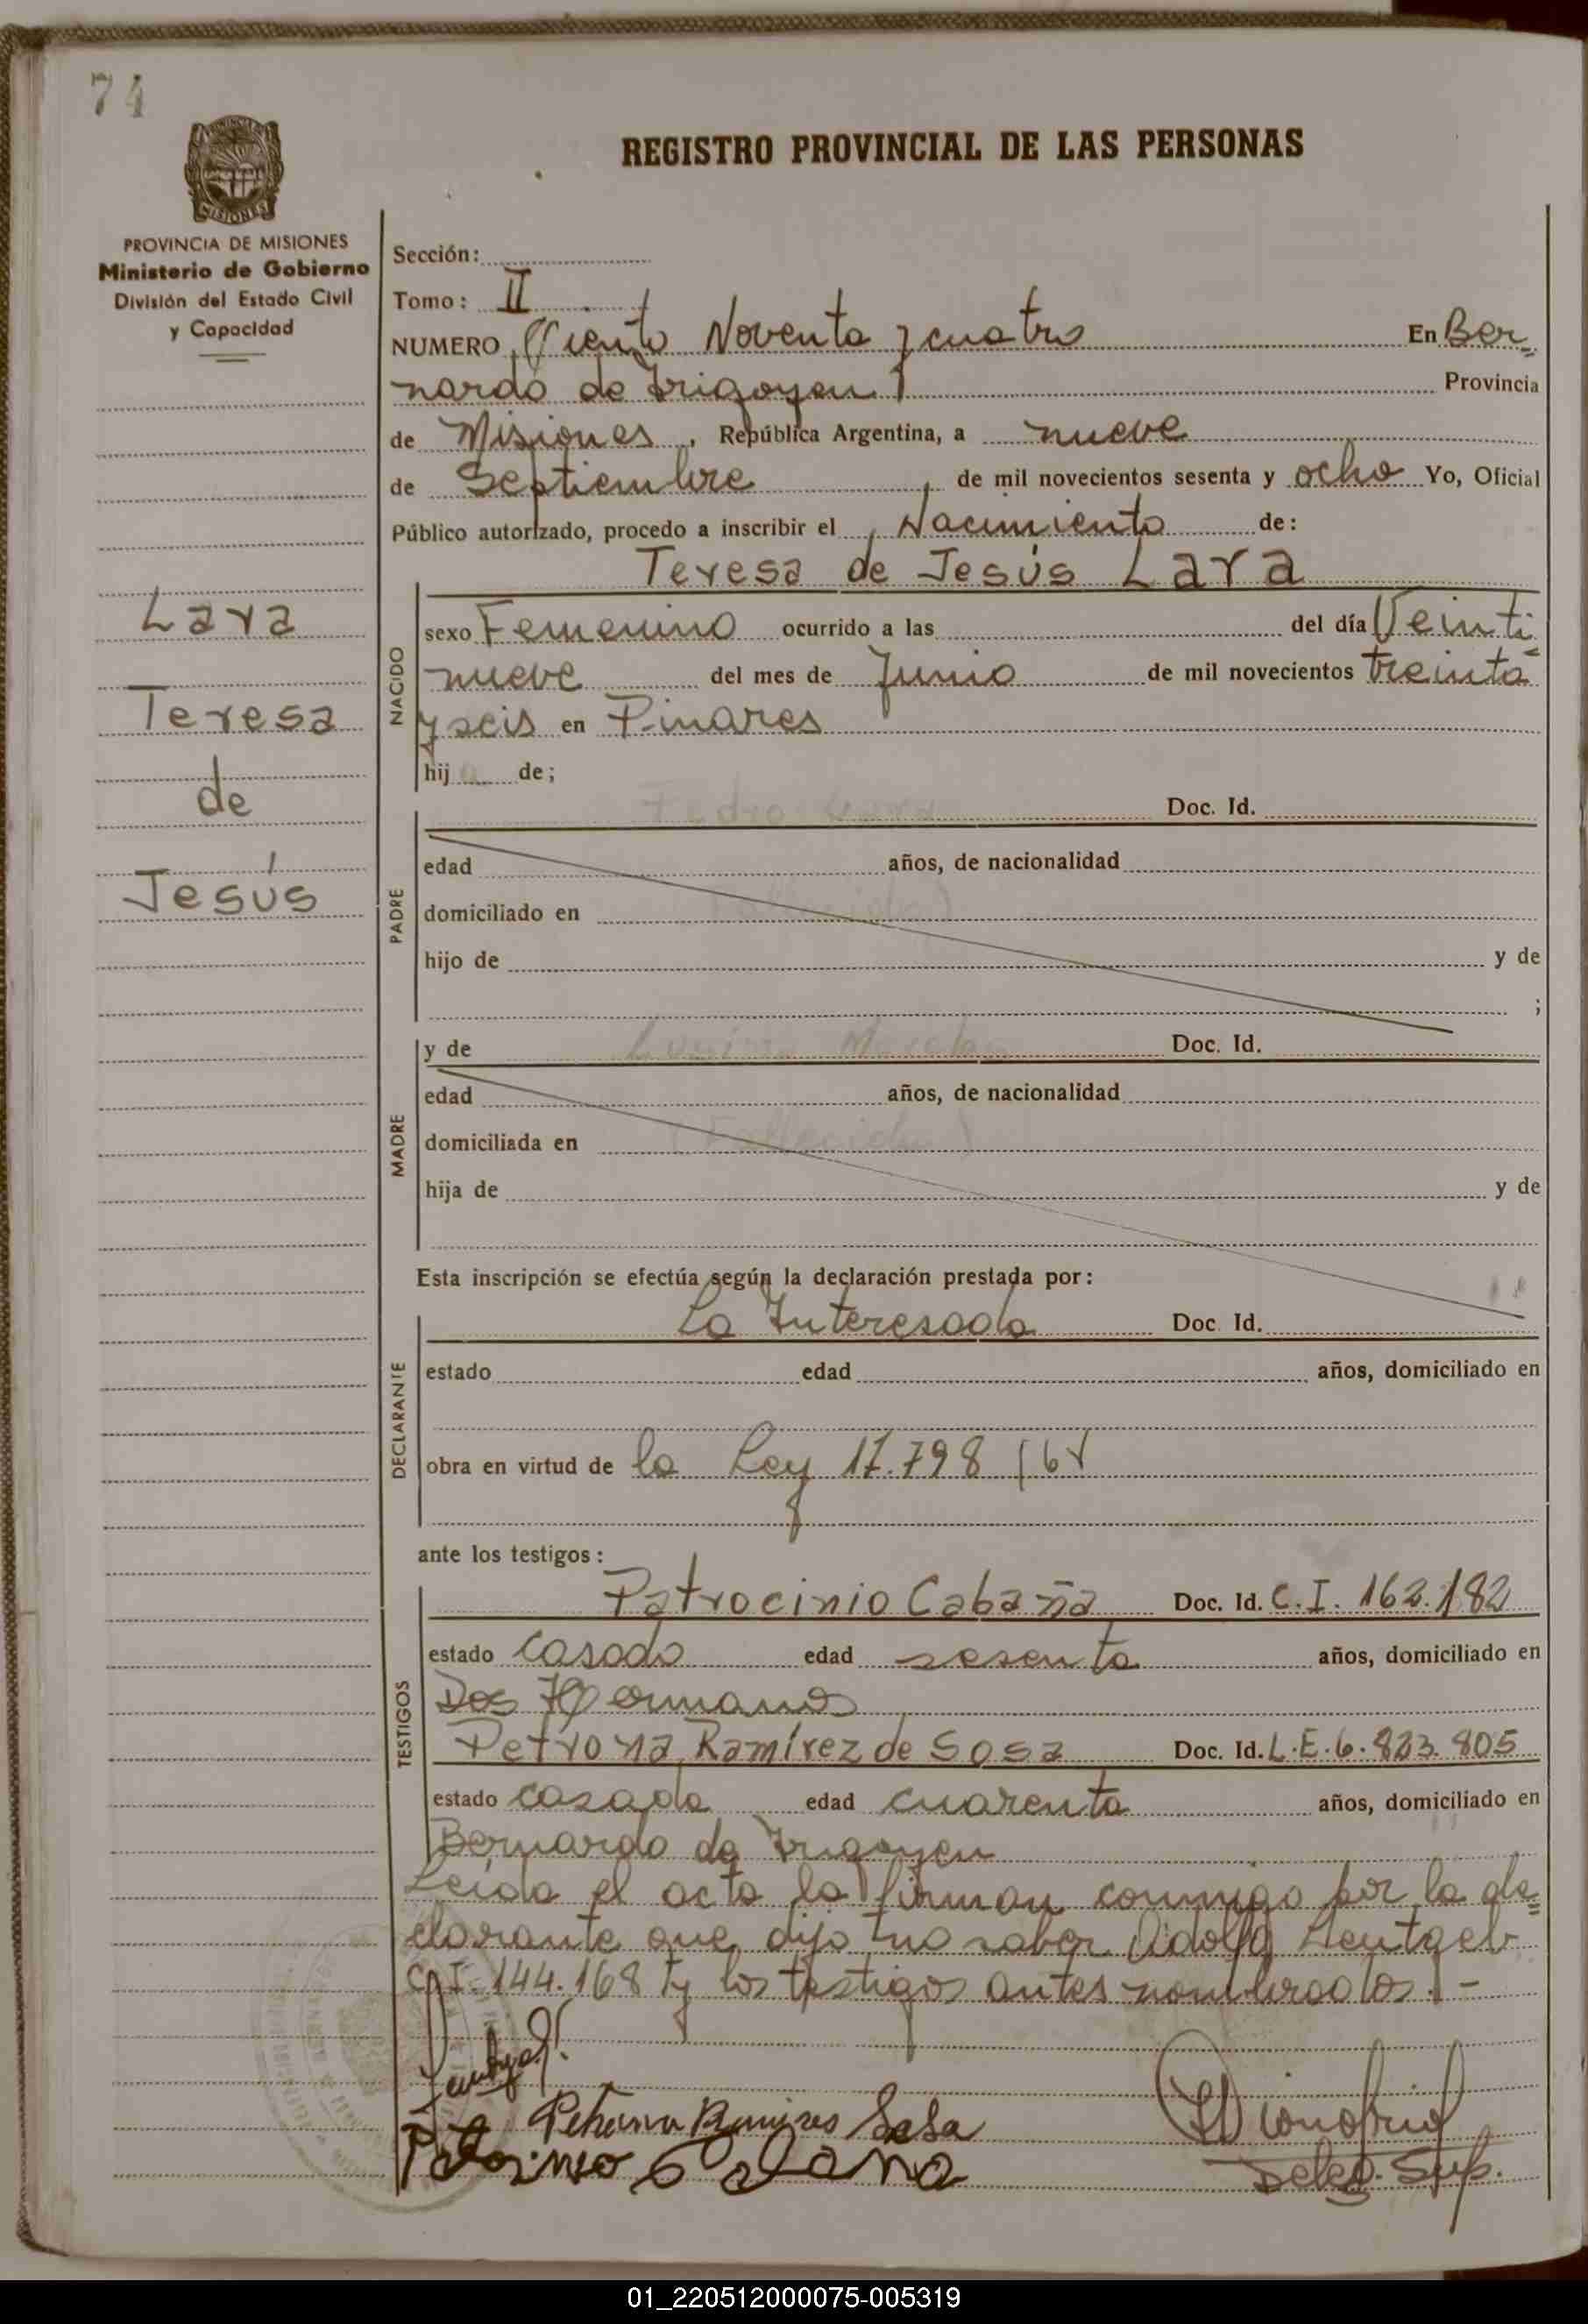 74
REGISTRO PROVINCIAL DE LAS PERSONAS
MISIONES
PROVINCIA DE MISIONES
Ministerio de Gobierno
División del Estado Civil
y Capacidad
Lara
Teresa
de
Jesús
Sección:
Tomo: II
NUMERO Ciento Noventa y cuatro En Ber=
nardo de Irigoyen Provincia
de Misiones, República Argentina, a nueve
de Septiembre, de mil novecientos sesenta y ocho Yo, Oficial
Público autorizado, procedo a inscribir el Nacimiento de:
Teresa de Jesús Lara
NACIDO
sexo Femenino ocurrido a las del día Veinti=
nueve del mes de Junio de mil novecientos treinta
y seis en Pinares
hij de;
Pedro Lara Doc. Id.
PADRE
edad años, de nacionalidad
domiciliado en
hijo de y de
;
MADRE
y de Morales Doc. Id.
edad años, de nacionalidad
domiciliada en (Fallecida)
hija de y de
Esta inscripción se efectúa según la declaración prestada por:
La Interesada Doc. Id.
DECLARANTE
estado edad años, domiciliado en
obra en virtud de la Ley 17.798/68
ante los testigos:
Patrocinio Cabaña Doc. Id. C.I. 162.182
TESTIGOS
estado casado edad sesenta años, domiciliado en
Dos Hermanos
Petrona Ramírez de Sosa Doc. Id. L.E. 6.823.805
estado casada edad cuarenta años, domiciliado en
Bernardo de Irigoyen
Leída el acta la firman conmigo por la de=
clarante que dijo no saber Adolfo Leutgeb
C.I. 144.168 y los testigos antes nombrados.-
Petrona Ramires Sosa
Deleg. Sup.
01_220512000075-005319